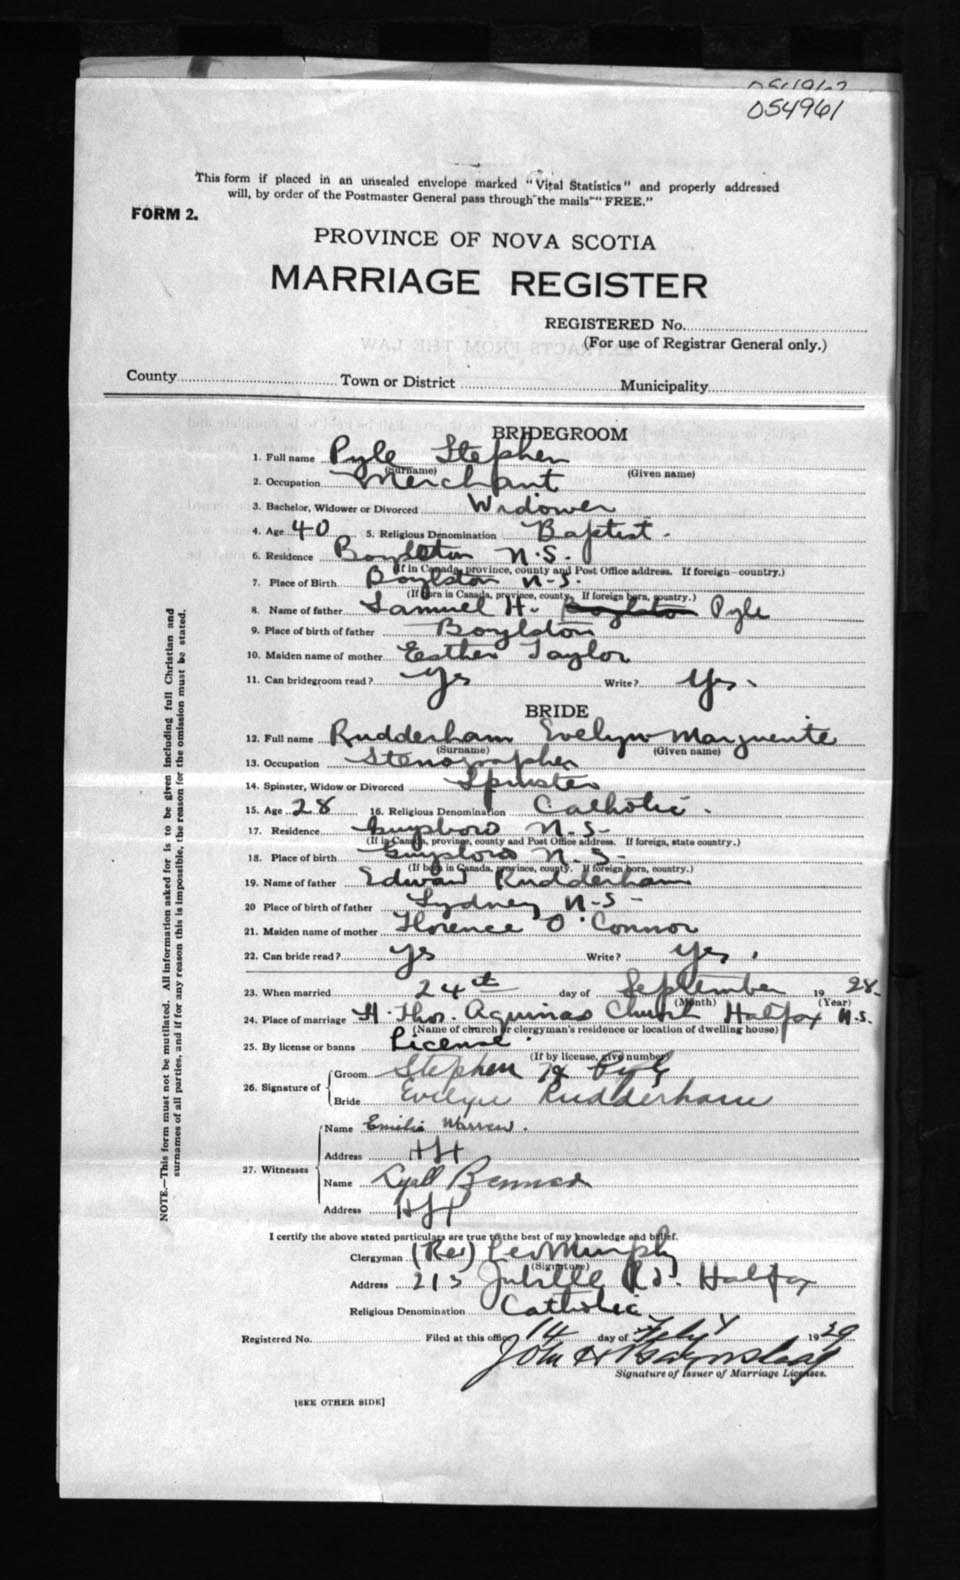 054962
054961
This form if placed in an unsealed envelope marked "Vital Statistics" and properly addressed
will, by order of the Postmaster General pass through the mails "FREE."
FORM 2.
PROVINCE OF NOVA SCOTIA
MARRIAGE REGISTER
REGISTERED No.
(For use of Registrar General only.)
County Town or District Municipality
BRIDEGROOM
1. Full name Pyle Stephen
(Surname) (Given name)
2. Occupation Merchant
3. Bachelor, Widower or Divorced Widower
4. Age 40 5. Religious Denomination Baptist.
6. Residence Boylston N.S.
(If in Canada, province, county and Post Office address. If foreign—country.)
7. Place of Birth Boylston N-S.
(If born in Canada, province, county. If foreign born, country.)
8. Name of father Samuel H. Boylston Pyle
9. Place of birth of father Boylston
10. Maiden name of mother Esther Taylor
11. Can bridegroom read? Yes Write? Yes.
BRIDE
12. Full name Rudderham Evelyn Marguerite
(Surname) (Given name)
13. Occupation Stenographer
14. Spinster, Widow or Divorced Spinster
15. Age 28 16. Religious Denomination Catholic.
17. Residence Guysboro N.S-
(If in Canada, province, county and Post Office address. If foreign, state country.)
18. Place of birth Guysboro N.S-
(If born in Canada, province, county. If foreign born, country.)
19. Name of father Edward Rudderham
20 Place of birth of father Sydney N-S-
21. Maiden name of mother Florence O'Connor
22. Can bride read? Yes Write? Yes.
23. When married 24th day of September 1928.
(Month) (Year)
24. Place of marriage St. Thos. Aquinas Church Halifax N.S.
(Name of church or clergyman's residence or location of dwelling house)
25. By license or banns License.
(If by license, give number)
26. Signature of Groom Stephen Pyle
Bride Evelyn Rudderham
27. Witnesses
Name Emilie Warren.
Address Hfx
Name Bennett
Address Hfx
I certify the above stated particulars are true to the best of my knowledge and belief.
Clergyman (Rev) Leo Murphy
(Signature)
Address 213 Jubilee Rd. Halifax
Religious Denomination Catholic
Registered No. Filed at this office 14 day of 1929
John H Barnstead
Signature of Issuer of Marriage Licenses.
[SEE OTHER SIDE]
NOTE.—This form must not be mutilated. All information asked for is to be given including full Christian and
surnames of all parties, and if for any reason this is impossible, the reason for the omission must be stated.